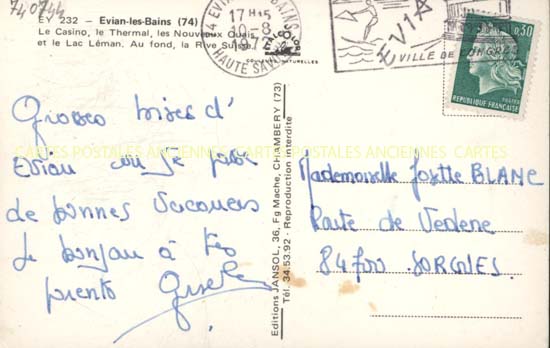 740744
EY 232 - Evian-les-Bains (74)
Le Casino, le Thermal, les Nouveaux Quais
et le Lac Léman. Au fond, la Rive Suisse.
74 EVIAN BAINS
17H15
10-8
HAUTE SAVOIE
EVIAN
VILLE DE CONGRES
COULEURS NATURELLES
0,30
POSTES
REPUBLIQUE FRANÇAISE
Grosses bises d'
Evian où je passe
de bonnes vacances
le bonjour à tes
parents Gisèle
Editions JANSOL, 36, Fg Mache, CHAMBERY (73)
Tél. 34.53.92 - Reproduction interdite
Mademoiselle Josette BLANC
Route de Vedene
84700 SORGUES.
CARTES POSTALES ANCIENNES CARTES POSTALES ANCIENNES CARTES POSTALES ANCIENNES CARTES